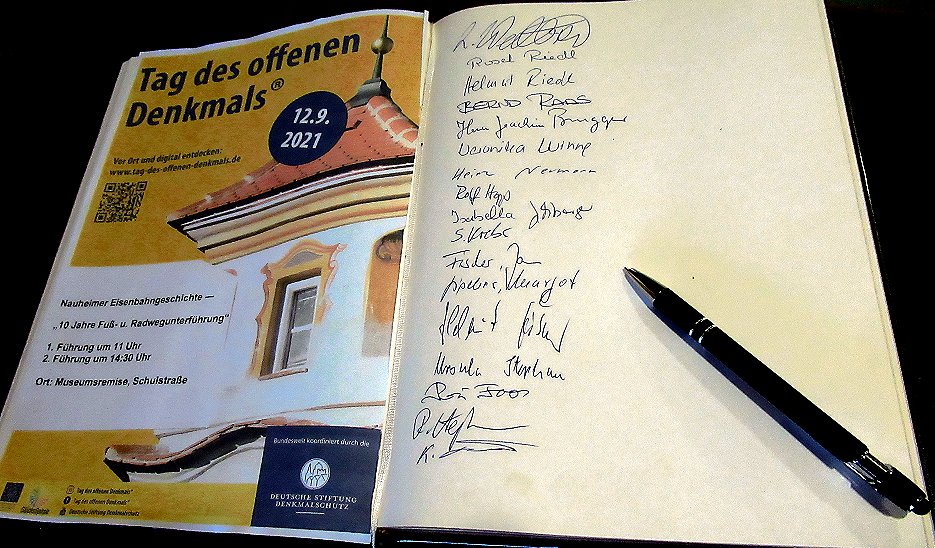 Tag des offenen
Denkmals®
12.9.
2021
Vor Ort und digital entdecken:
www.tag-des-offenen-denkmals.de
Nauheimer Eisenbahngeschichte —
„10 Jahre Fuß- u. Radwegunterführung"
1. Führung um 11 Uhr
2. Führung um 14:30 Uhr
Ort: Museumsremise, Schulstraße
Bundesweit koordiniert durch die
DEUTSCHE STIFTUNG
DENKMALSCHUTZ
Tag des offenen Denkmals®
Tag des offenen Denkmals®
Deutsche Stiftung Denkmalschutz
Riedl
Helmut Riedl
BERND RAAS
Joachim Brugger
Veronika Winne
Heinz Neumann
Rolf
Isabella
S. Krebs
Fischer, Jan
Margot
Ursula Stephan
R.
K.